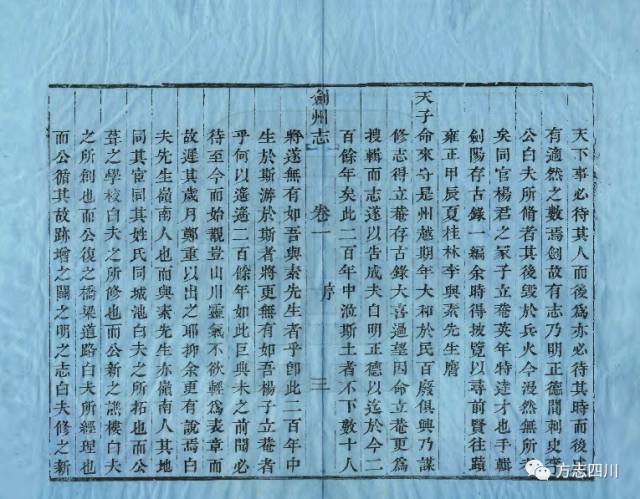 天下事必待其人而後爲亦必待其時而後成
有適然之數焉劍故有志乃明正德間刺史李
公白夫所脩者其後毀於兵火今漫然無所考
矣同官楊君之冢子立菴英年特達才也手輯
劍陽存古錄一編余時得披覽以尋前賢往蹟
雍正甲辰夏桂林李興素先生膺
天子命來守是州越期年大和於民百廢俱興乃謀
修志得立菴存古錄大喜過望因命立菴更爲
搜輯而志遂以告成夫自明正德以迄於今二
百餘年矣此二百年中涖斯土者不下數十八
劍州志 卷一 序 三
將遂無有如吾興素先生者乎卽此二百年中
生於斯游於斯者將更無有如吾楊子立菴者
乎何以遙遙二百餘年如此巨典未之前聞必
待至今而始觀登山川靈氣不欲輕爲表章而
故遲其歲月鄭重以出之耶抑余更有說焉白
夫先生嶺南人也而興素先生亦嶺南人其地
同其宦同其姓氏同城池白夫之所拓也而公
葺之學校白夫之所修也而公新之譙樓白夫
之所創也而公復之橋梁道路白夫所經理也
而公循其故跡增之闢之明之志白夫修之新
方志四川